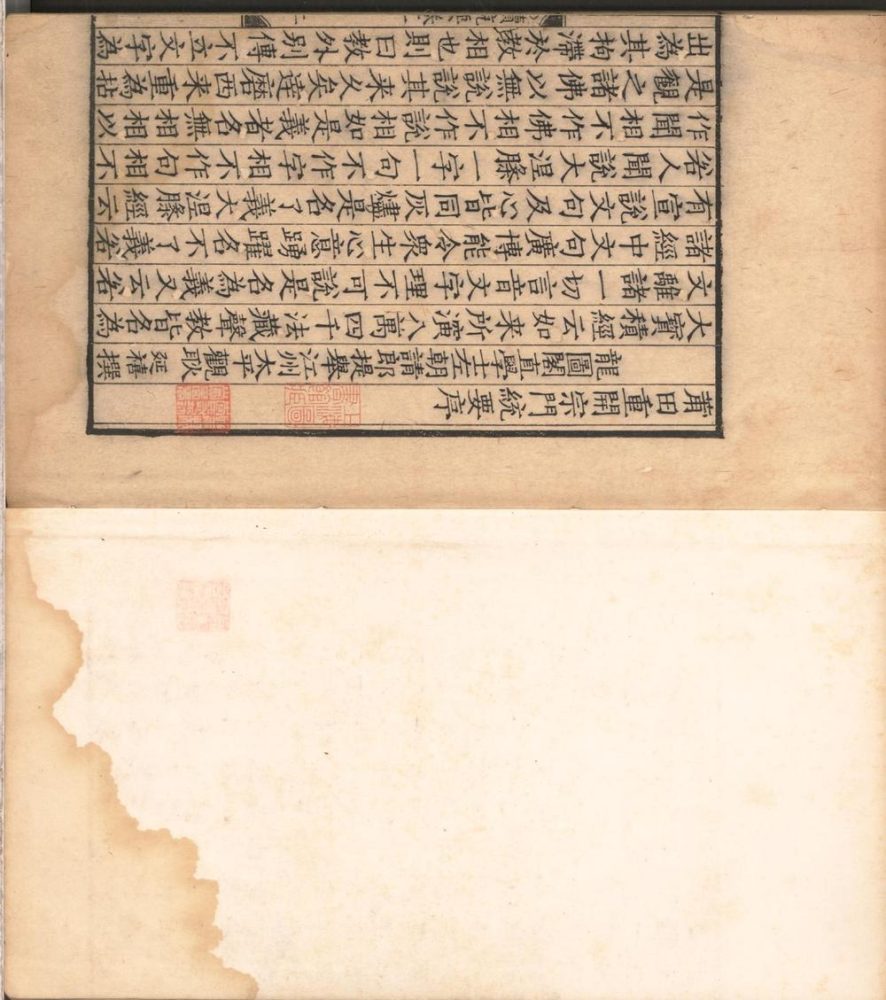 莆田重開宗門統要序
龍圖閣直學士左朝請郎提舉江州太平觀耿延禧撰
大寶積經云如来所演八萬四千法藏聲教皆名為
文離諸一切言音文字理不可說是名為義又云若
諸經中文句廣博能令衆生心意踴躍名不了義若
有宣說文句及心皆同灰燼是名了義大涅槃經云
若人聞說大涅槃一字一句不作字相不作句相不
作聞相不作佛相不作說相如是義者名無相相以
是觀之諸佛以無說說其来久矣達磨西来重為拈
出為其拘滯於教相也則曰教外別傳不立文字為